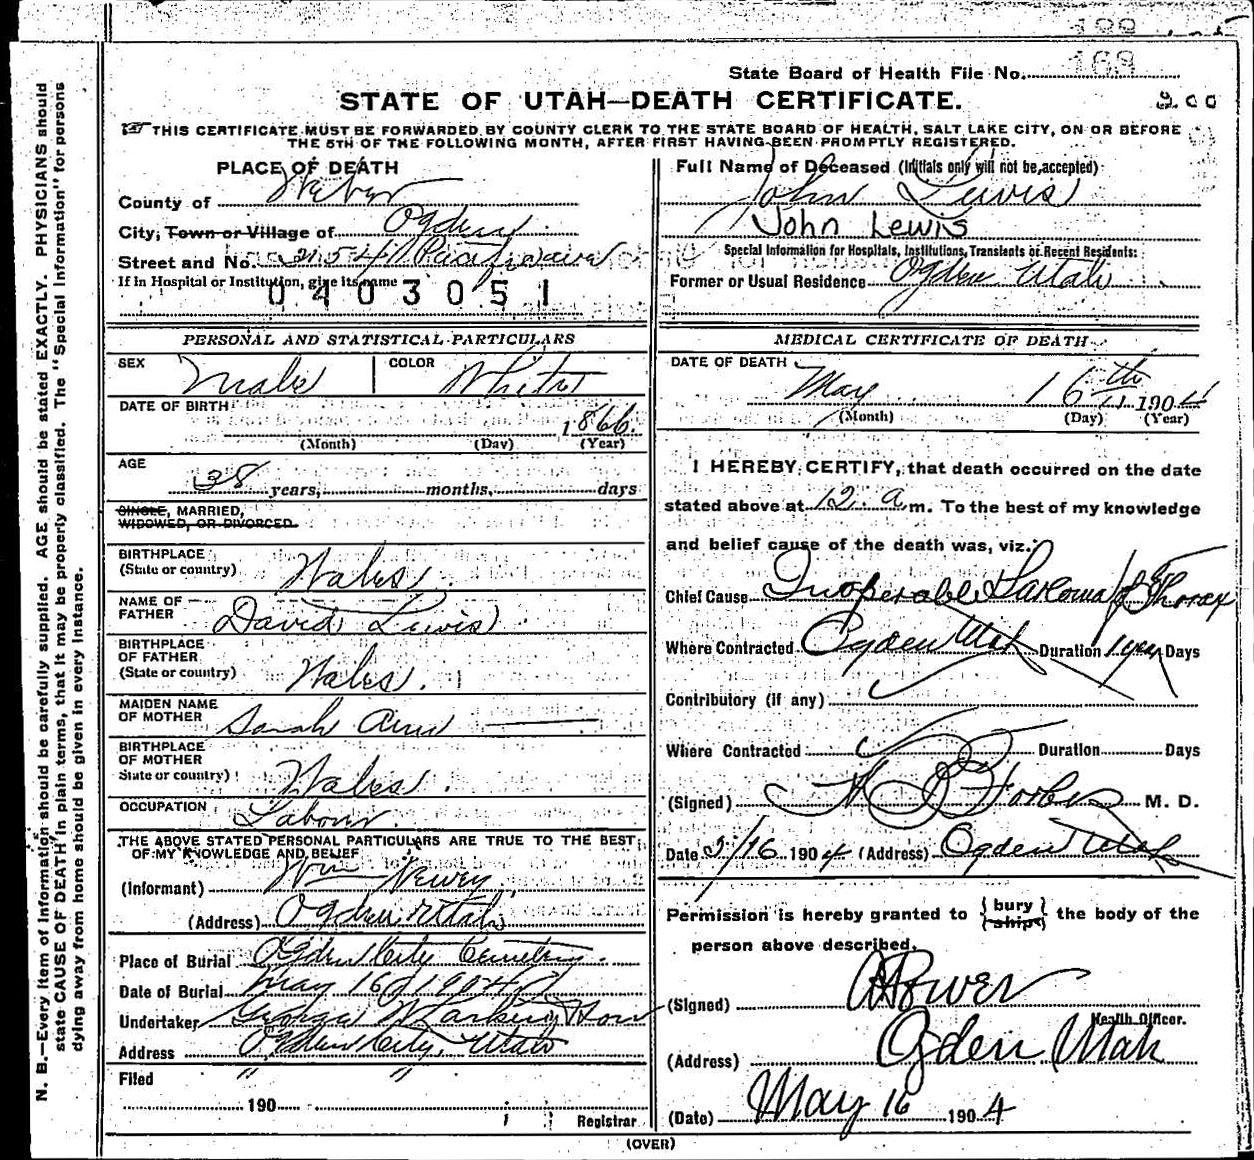 State Board of Health File No. 169
STATE OF UTAH—DEATH CERTIFICATE.
THIS CERTIFICATE MUST BE FORWARDED BY COUNTY CLERK TO THE STATE BOARD OF HEALTH, SALT LAKE CITY, ON OR BEFORE
THE 5TH OF THE FOLLOWING MONTH, AFTER FIRST HAVING BEEN PROMPTLY REGISTERED.
PLACE OF DEATH
County of Weber
City, Town or Village of Ogden
Street and No. 2154
If in Hospital or Institution, give its name
0403051
Full Name of Deceased (Initials only will not be accepted)
John Lewis
John Lewis
Special Information for Hospitals, Institutions, Transients or Recent Residents:
Former or Usual Residence Ogden Utah
PERSONAL AND STATISTICAL PARTICULARS
SEX Male COLOR White
DATE OF BIRTH
1866.
(Month) (Day) (Year)
AGE
38 years, months, days
SINGLE, MARRIED,
WIDOWED, OR DIVORCED
BIRTHPLACE
(State or country) Wales.
NAME OF
FATHER David Lewis
BIRTHPLACE
OF FATHER
(State or country) Wales.
MAIDEN NAME
OF MOTHER Sarah Ann
BIRTHPLACE
OF MOTHER
State or country) Wales.
OCCUPATION Labour.
THE ABOVE STATED PERSONAL PARTICULARS ARE TRUE TO THE BEST
OF MY KNOWLEDGE AND BELIEF
(Informant) Wm Newey
(Address) Ogden Utah
Place of Burial Ogden City Cemetery.
Date of Burial May 16 1904
Undertaker George
Address Ogden City, Utah
Filed " "
190
Registrar
MEDICAL CERTIFICATE OF DEATH
DATE OF DEATH
May 16th 1904
(Month) (Day) (Year)
I HEREBY CERTIFY, that death occurred on the date
stated above at 12. a. m. To the best of my knowledge
and belief cause of the death was, viz.
Chief Cause Inoperable Sarcoma of Thorax
Where Contracted Ogden Utah Duration 1 year Days
Contributory (if any)
Where Contracted Duration Days
(Signed) Forbes M. D.
Date 5/16 1904 (Address) Ogden Utah
Permission is hereby granted to { bury ships } the body of the
person above described.
(Signed) Power
Health Officer.
(Address) Ogden Utah
(Date) May 16 1904
(OVER)
N. B.—Every item of information should be carefully supplied. AGE should be stated EXACTLY. PHYSICIANS should
state CAUSE OF DEATH in plain terms, that it may be properly classified. The "Special Information" for persons
dying away from home should be given in every instance.